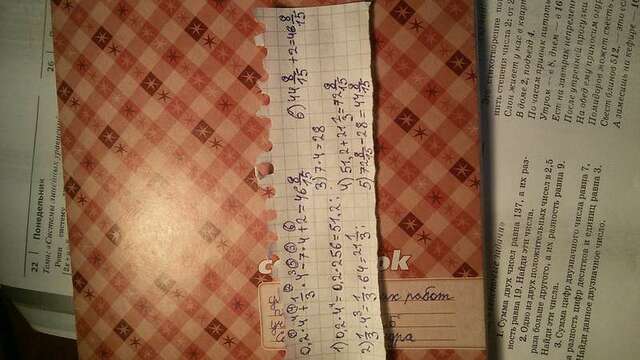 22 Понедельник
Тема: «Системы линейных уравнений
Реши систему
26
0,2 · 4⁴ + 1/3 · 4³ - 7 · 4 + 2 = 46 8/15
1) 0,2 · 4⁴ = 0,2 · 256 = 51,2;
2) 1/3 · 4³ = 1/3 · 64 = 21 1/3;
3) 7 · 4 = 28
4) 51,2 + 21 1/3 = 72 8/15
5) 72 8/15 - 28 = 44 8/15
6) 44 8/15 + 2 = 46 8/15
работ
ok
1. Сумма двух чисел равна 137, а их раз-
ность равна 19. Найди эти числа.
2. Одно из двух положительных чисел в 2,5
раза больше другого, а их разность равна 9.
Найди эти числа.
3. Сумма цифр двузначного числа равна 7,
а разность цифр десятков и единиц равна 3.
Найди данное двузначное число.
Это стихотворение по
нить степени числа 2: от 2
Слон живёт у нас в кварт
В доме 2, подъезд 4.
По часам привык питать
Утром — в 8, днём — в 16
Есть на завтрак непремен
После утренней прогулки
На обед ему приносим огур
Помидоров может съесть
Съест блинов 512, — это ес
А замесишь на кефире